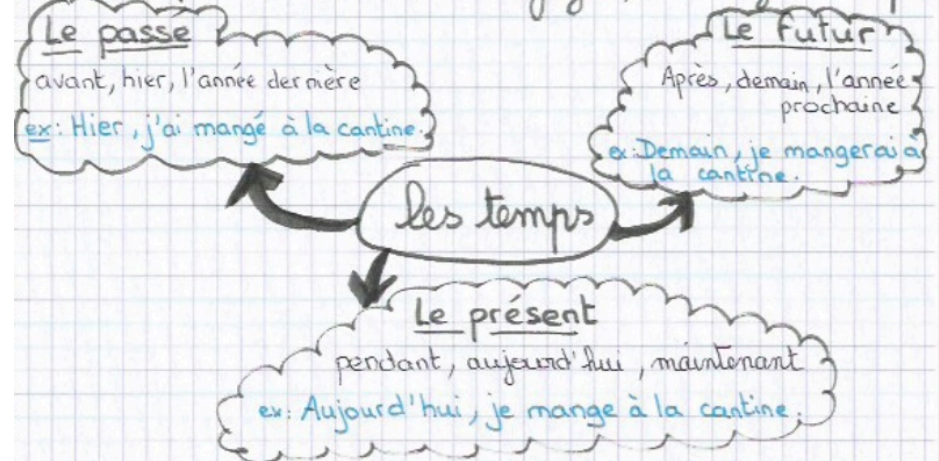 Le passé
avant, hier, l'année dernière
ex: Hier, j'ai mangé à la cantine.
Le futur
Après, demain, l'année
prochaine
ex: Demain, je mangerai à
la cantine.
les temps
Le présent
pendant, aujourd'hui, maintenant
ex: Aujourd'hui, je mange à la cantine.